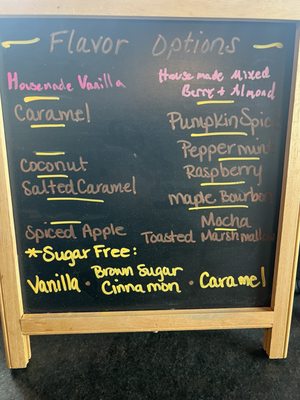 Flavor Options
Housemade Vanilla
Caramel
Coconut
Salted Caramel
Spiced Apple
Housemade Mixed
Berry + Almond
Pumpkin Spic
Peppermint
Raspberry
Maple Bourbon
Mocha
Toasted Marshmallo
*Sugar Free:
Vanilla · Brown Sugar Cinnamon · Caramel